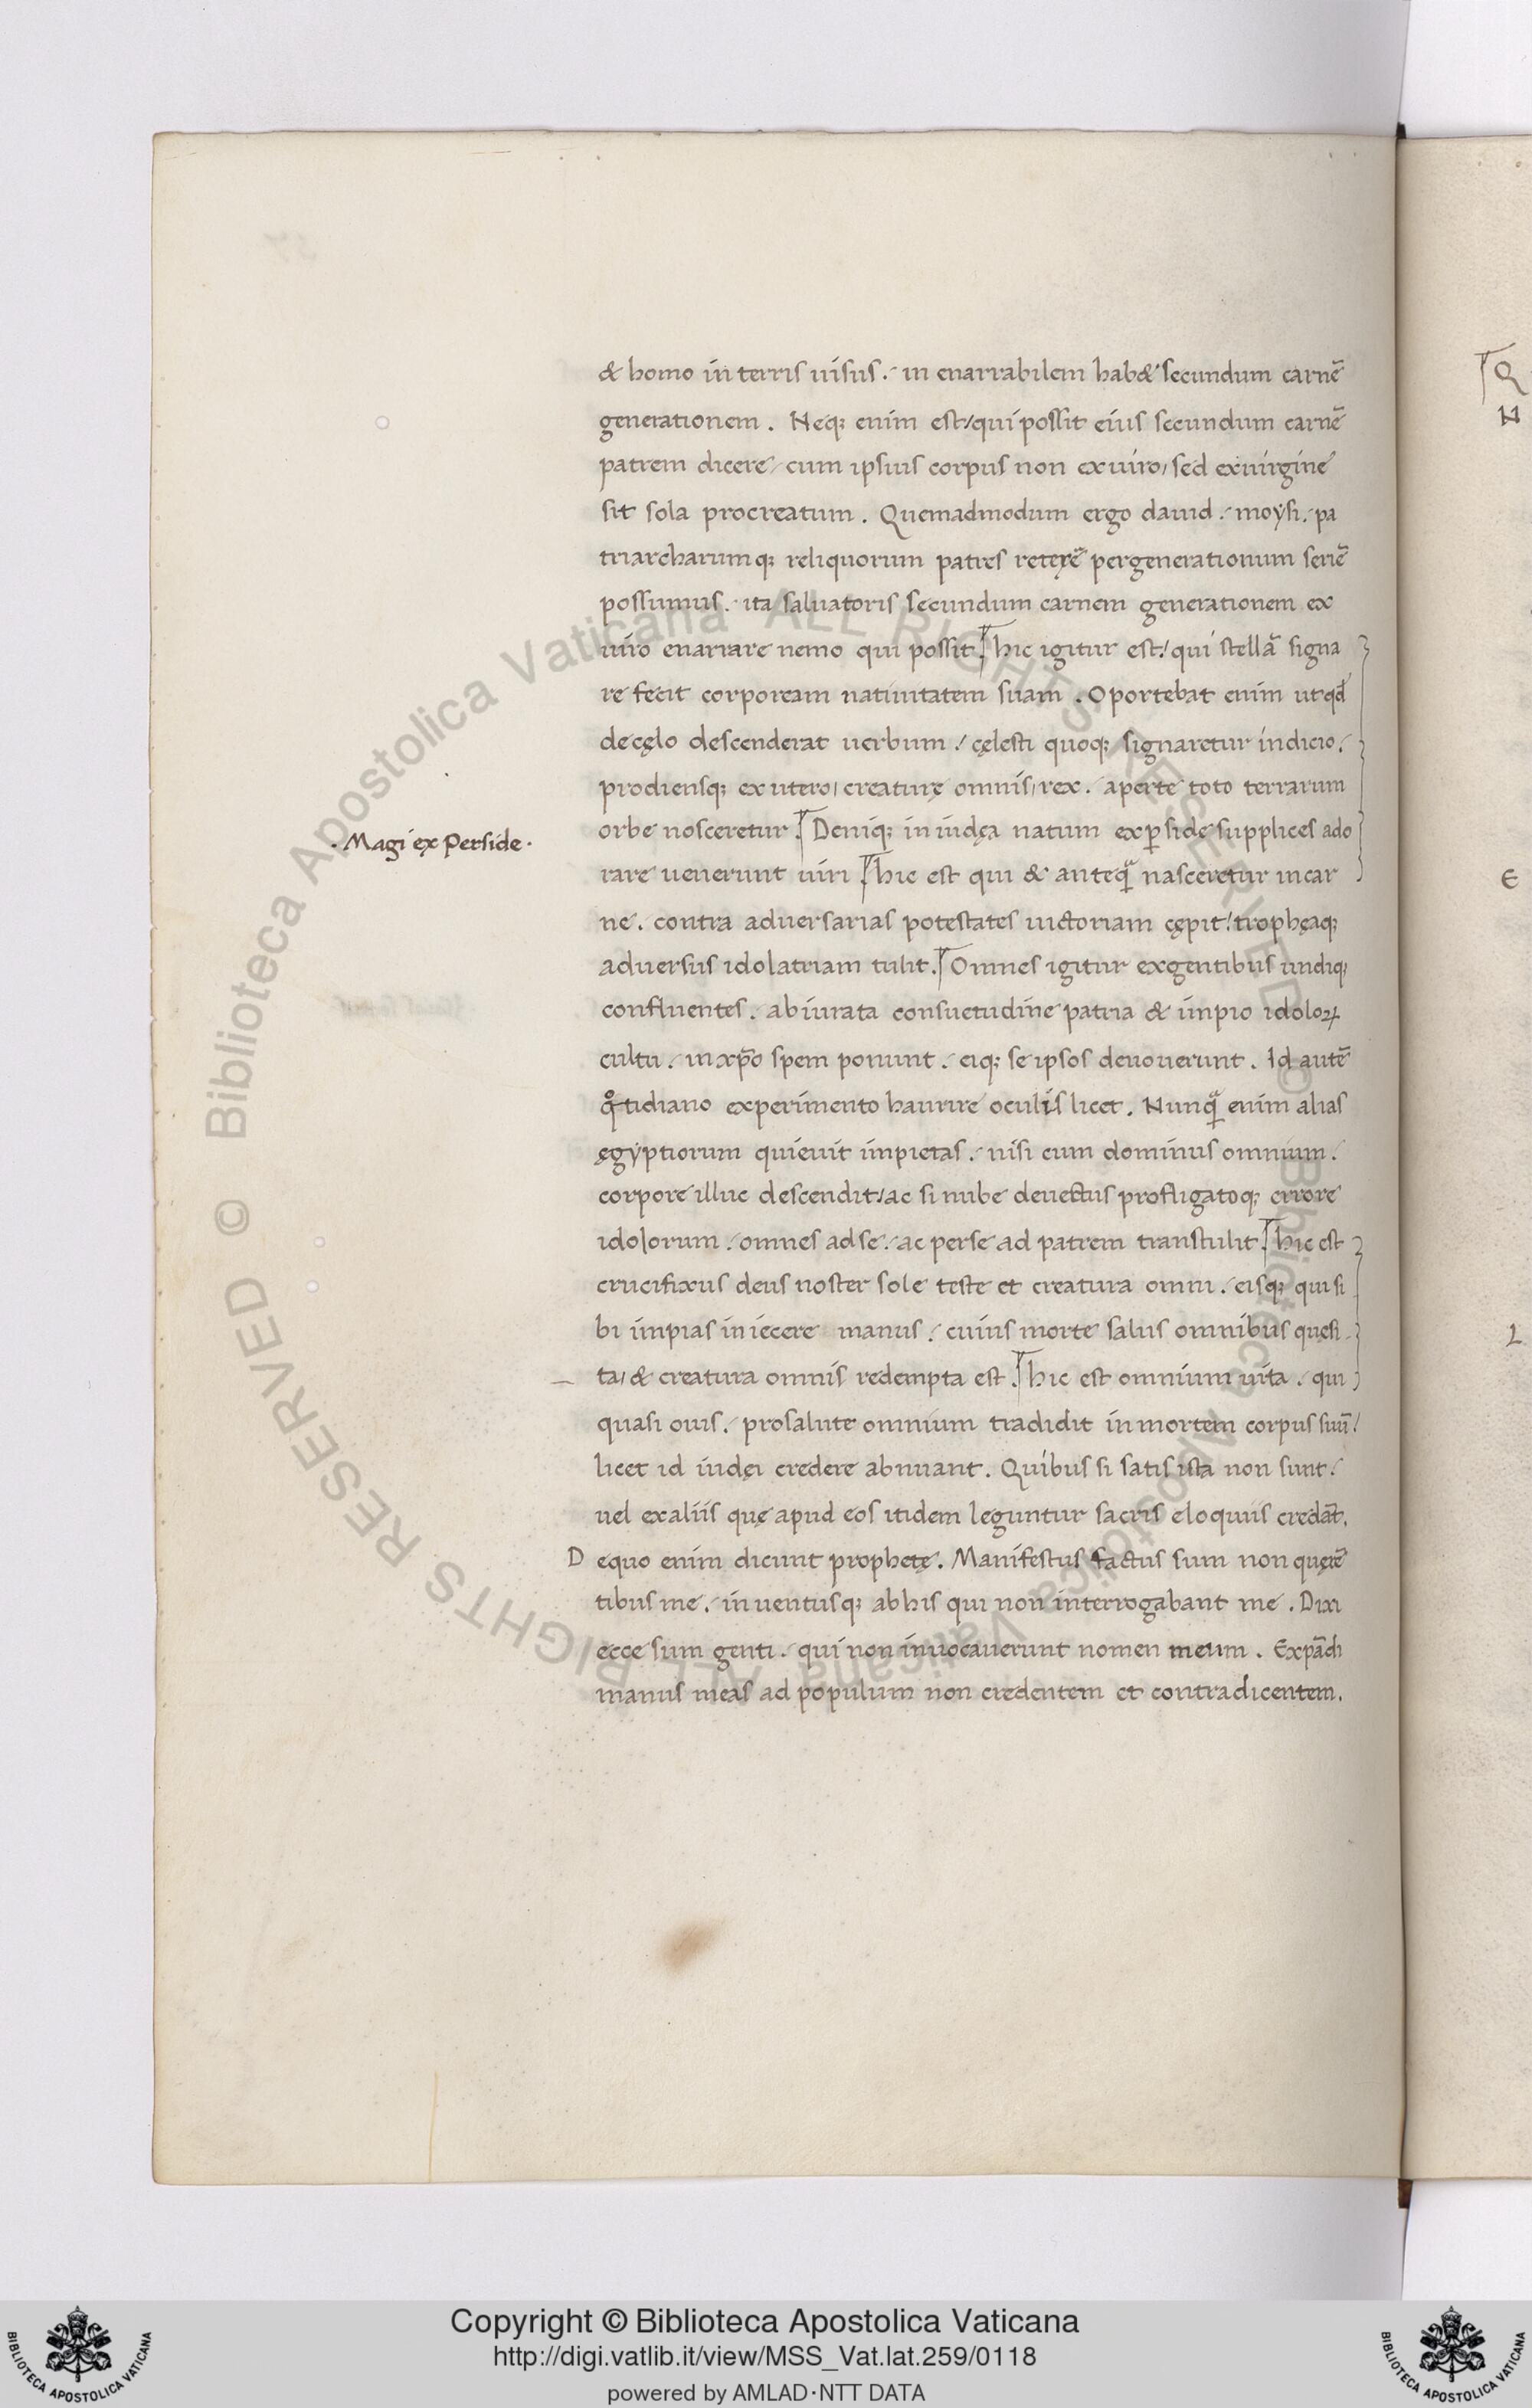 & homo in terris uisus. in enarrabilem hab& secundum carnē
generationem. Neq; enim est/ qui possit eius secundum carnē
patrem dicere/ cum ipsius corpus non ex uiro/ sed ex uirgine
sit sola procreatum. Quemadmodum ergo dauid./ moysi./ pa
triarcharumq; reliquorum patres pergenerationum seriē
possumus./ ita saluatoris secundum carnem generationem ex
uiro enarrare nemo qui possit. hic igitur est/ qui stellā signa
re fecit corpoream natiuitatem suam. Oportebat enim ut qd̄
de cęlo descenderat uerbum./ cęlesti quoq; signaretur indicio./
prodiensq; ex utero/ creaturę omnis/ rex./ aperte toto terrarum
orbe nosceretur. Deniq; in iudęa natum ex ꝑside supplices ado
· Magi ex Perside ·
rare uenerunt uiri. hic est qui & anteq̃ nasceretur in car
ne./ contra aduersarias potestates uictoriam cępit/ trophęaq;
aduersus idolatriam tulit. Omnes igitur ex gentibus undiq;
confluentes./ abiurata consuetudine patria & impio idoloꝝ
cultu./ in xp̄o spem ponunt./ eiq; se ipsos deuouerunt. Id autē
qͦtidiano experimento haurire oculis licet. Nunq̃ enim alias
ęgyptiorum quieuit impietas./ nisi cum dominus omnium./
corpore illuc descendit/ ac si nube deuectus profligatoq; errore
idolorum./ omnes ad se./ ac per se ad patrem transtulit. hic est
crucifixus deus noster sole teste et creatura omni./ eisq; qui si
bi impias in iecere manus./ cuius morte salus omnibus quęsi
ta/ & creatura omnis redempta est. hic est omnium uita./ qui
quasi ouis./ pro salute omnium tradidit in mortem corpus suū/
licet id iudęi credere abnuant. Quibus si satis ista non sunt./
uel ex aliis quę apud eos itidem leguntur sacris eloquiis credāt.
D equo enim dicunt prophetę. Manifestus factus sum non quęrē
tibus me./ in uentusq; ab his qui non interrogabant me. Dixi
ecce sum genti./ qui non inuocauerunt nomen meum. Expādi
manus meas ad populum non credentem et contradicentem.
Q
N
E
L
© Biblioteca Apostolica Vaticana ALL RIGHTS RESERVED © Biblioteca Apostolica Vaticana ALL RIGHTS RESERVED
Copyright © Biblioteca Apostolica Vaticana
http://digi.vatlib.it/view/MSS_Vat.lat.259/0118
powered by AMLAD·NTT DATA
BIBLIOTECA APOSTOLICA VATICANA
BIBLIOTECA APOSTOLICA VATICANA